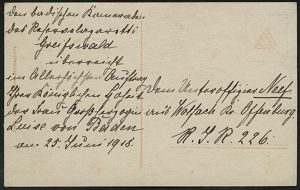 den badischen Kameraden
des Reservelazaretts
Greifswald
überreicht
im Allerhöchsten Auftrag
Ihrer Königlichen Hoheit
der Frau Großherzogin
Luise von Baden
am 25. Juni 1918.
dem Unteroffizier Neef
aus Wolfach Kr. Offenburg
R. I. R. 226.